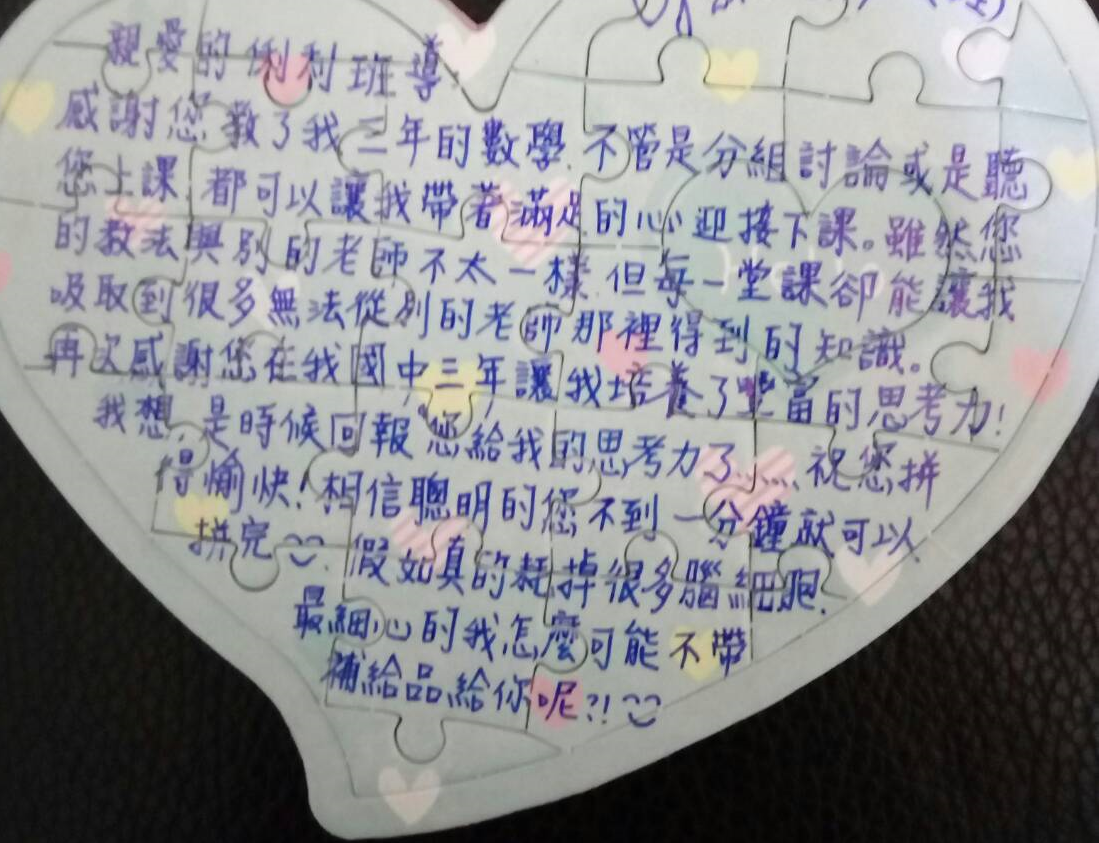 親愛的俐利班導
感謝您教了我三年的數學.不管是分組討論或是聽
您上課 都可以讓我帶著滿足的心迎接下課。雖然您
的教法與別的老師不太一樣.但每一堂課卻能讓我
吸取到很多無法從別的老師那裡得到的知識。
再次感謝您在我國中三年讓我培養了豐富的思考力!
我想,是時候回報您給我的思考力了......祝您拼
得愉快!相信聰明的您不到一分鐘就可以
拼完 假如真的耗掉很多腦細胞.
最細心的我怎麼可能不帶
補給品給你呢?!